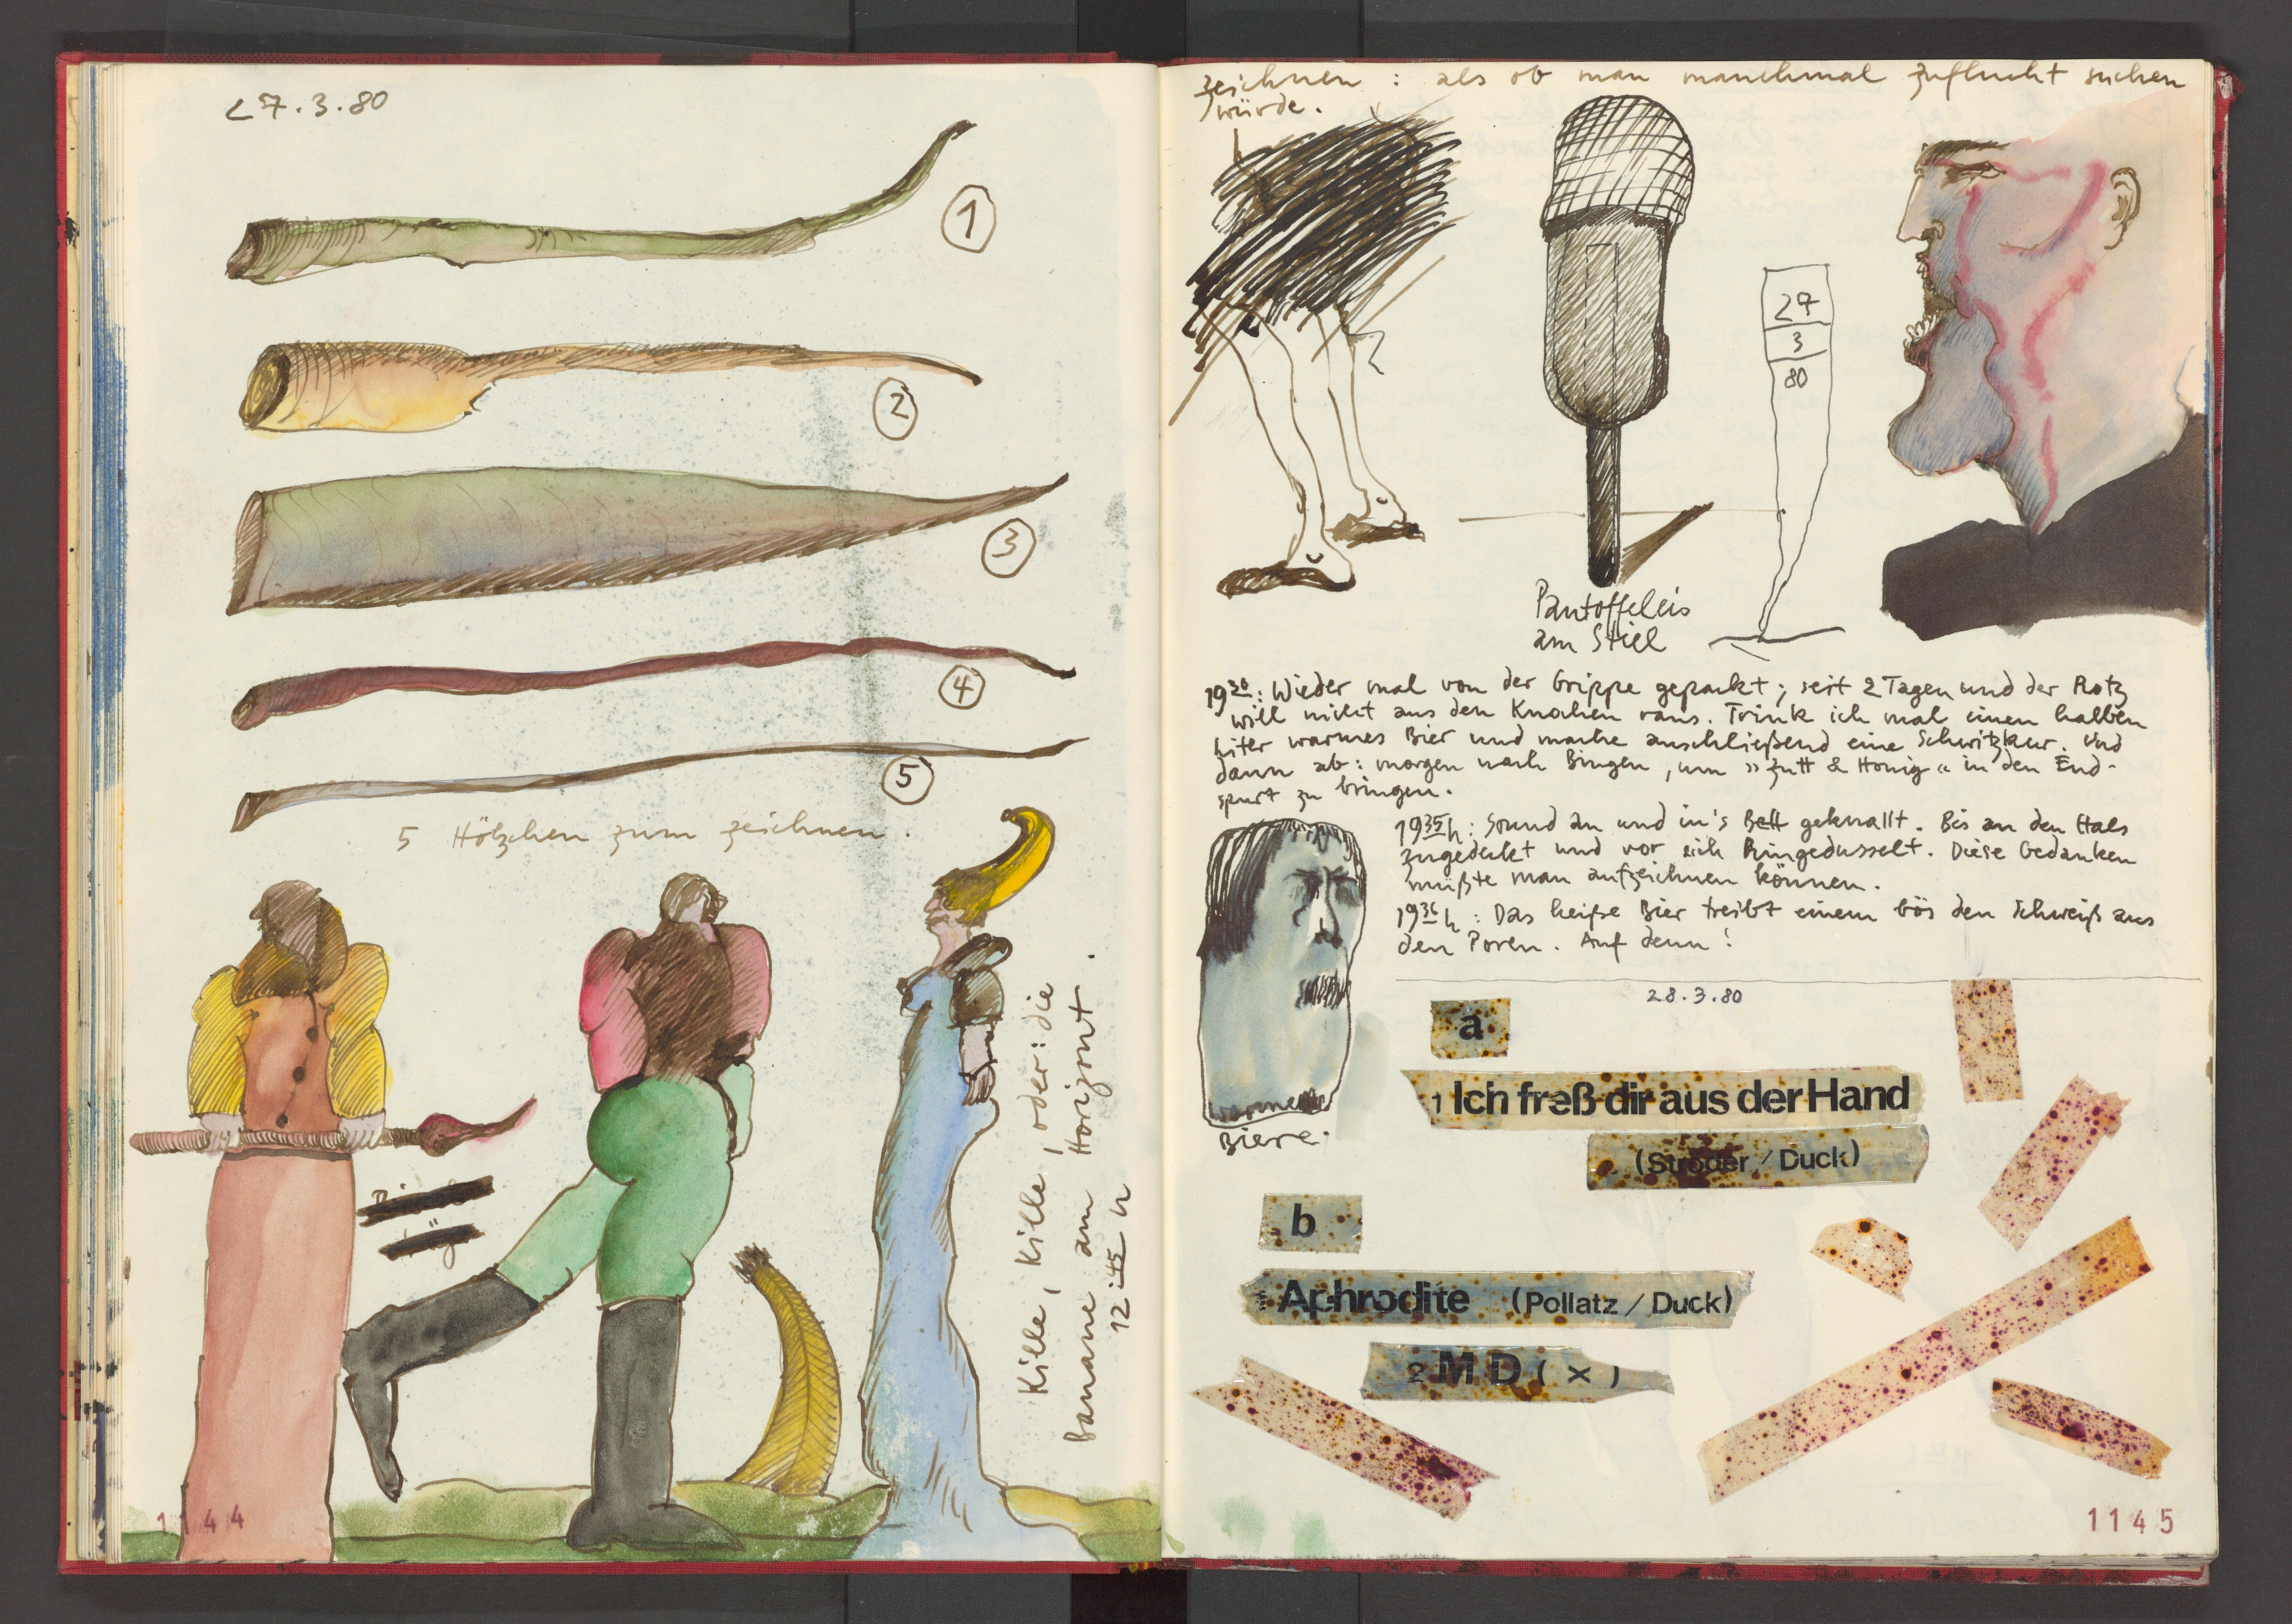 27.3.80
1
2
3
4
5
5 Hölzchen zum zeichnen.
Kille, Kille, Kille, oder: die
Banane am Horizont.
12:45 h
1144
zeichnen : als ob man manchmal Zuflucht suchen
würde.
27
3
80
Pantoffeleis
am Stiel
19 30: Wieder mal von der Grippe gepackt; seit 2 Tagen und der Rotz
will nicht aus den Knochen raus. Trink ich mal einen halben
Liter warmes Bier und mache anschließend eine Schwitzkur. Und
dann ab: morgen nach Bingen, um »Zutt & Honig« in den End-
spurt zu bringen.
19 35 h: Sound an und in's Bett geknallt. Bis an den Hals
zugedeckt und vor sich hingedusselt. Diese Gedanken
müßte man aufzeichnen können.
19 36 h: Das heiße Bier treibt einem bös den Schweiß aus
den Poren. Auf denn!
Biere.
28.3.80
a
1 Ich freß dir aus der Hand
(Ströder / Duck)
b
Aphrodite (Pollatz / Duck)
2 M D ( x )
1145